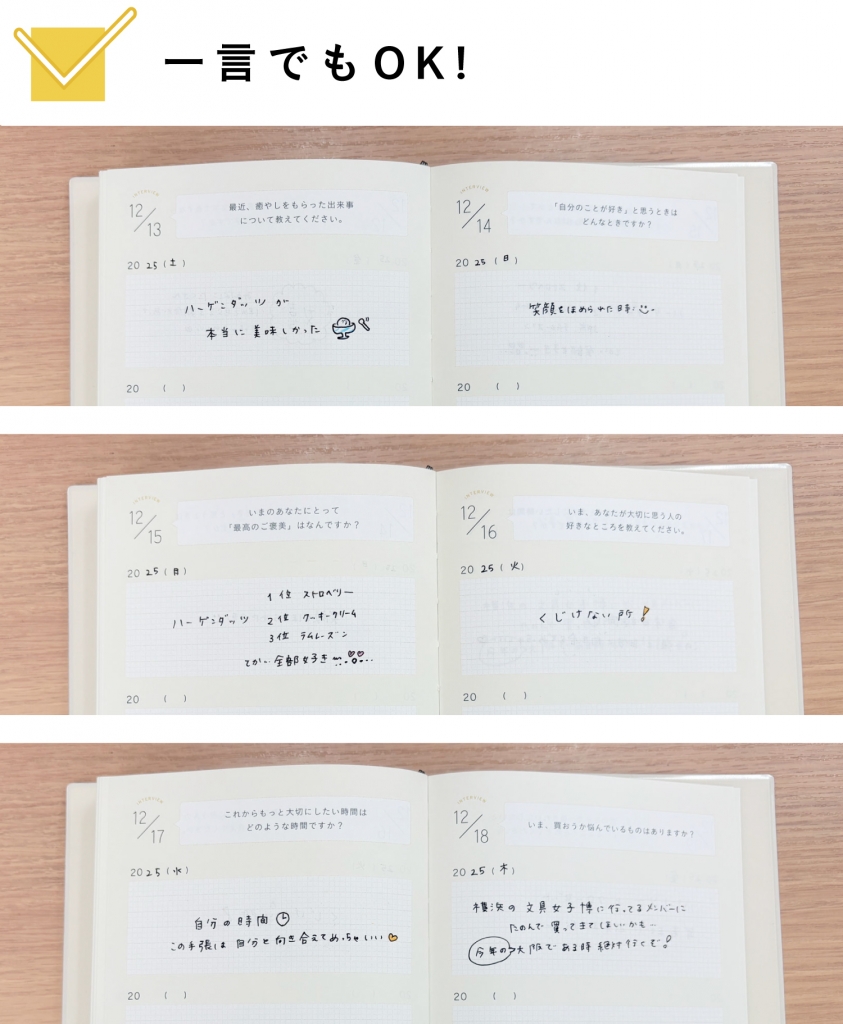 一言でもOK!
INTERVIEW
12/13
最近、癒やしをもらった出来事
について教えてください。
20 25 (土)
ハーゲンダッツが
本当に美味しかった
20 ( )
INTERVIEW
12/14
「自分のことが好き」と思うときは
どんなときですか？
20 25 (日)
笑顔をほめられた時!
20 ( )
INTERVIEW
12/15
いまのあなたにとって
「最高のご褒美」はなんですか？
20 25 (日)
1位 ストロベリー
ハーゲンダッツ 2位 クッキークリーム
3位 ラムレーズン
てか… 全部好き
20 ( )
INTERVIEW
12/16
いま、あなたが大切に思う人の
好きなところを教えてください。
20 25 (火)
くじけない所!
20 ( )
INTERVIEW
12/17
これからもっと大切にしたい時間は
どのような時間ですか？
20 25 (水)
自分の時間
この手張は自分と向き合えてめっちゃいい
20 ( )
INTERVIEW
12/18
いま、買おうか悩んでいるものはありますか？
20 25 (木)
横浜の文具女子博に行ってるメンバーに
たのんで買ってきてほしいかも…
今年の大阪である時絶対行くぞ!
20 ( )